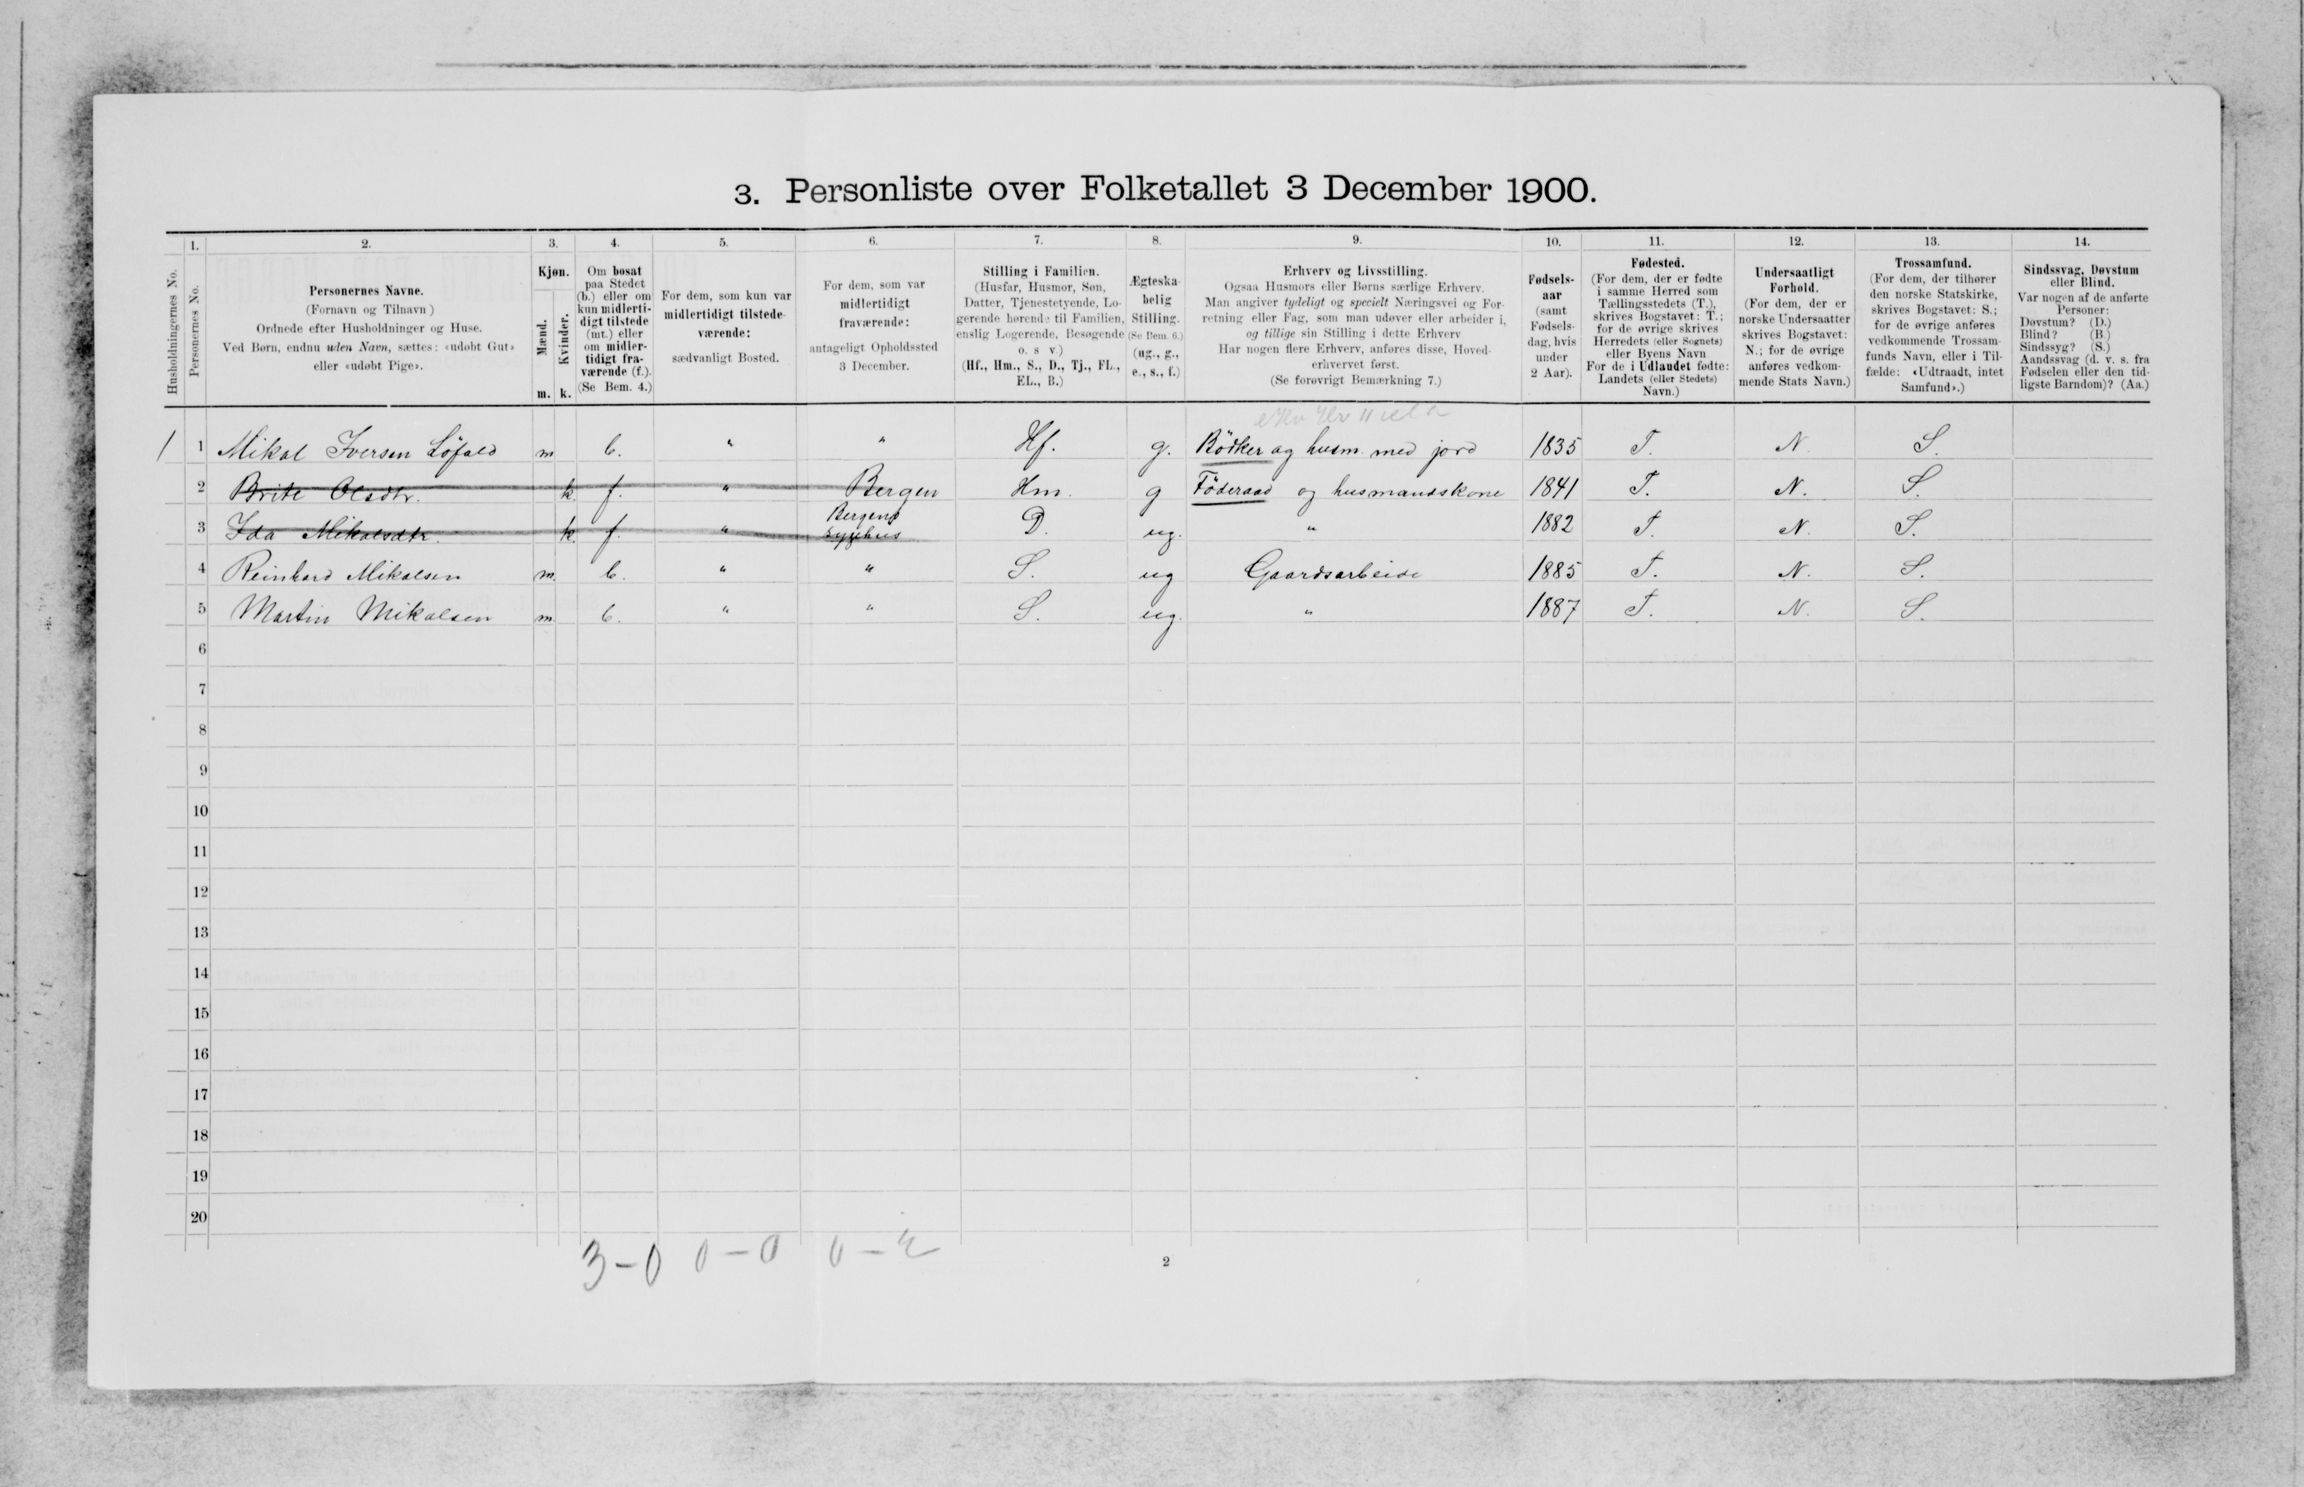 3. Personliste over Folketallet 3 December 1900.
1. 2. 3. 4. 5. 6. 7. 8. 9. 10. 11. 12. 13. 14.
Husholdningernes No.
Personernes No.
Personernes Navne.
(Fornavn og Tilnavn)
Ordnede efter Husholdninger og Huse.
Ved Børn, endnu uden Navn, sættes: «udøbt Gut»
eller «udøbt Pige».
Kjøn.
Mænd.
Kvinder.
m. k.
Om bosat
paa Stedet
(b.) eller om
kun midlerti-
digt tilstede
(mt.) eller
om midler-
tidigt fra-
værende (f.).
(Se Bem. 4.)
For dem, som kun var
midlertidigt tilstede-
værende:
sædvanligt Bosted.
For dem, som var
midlertidigt
fraværende:
antageligt Opholdssted
3 December.
Stilling i Familien.
(Husfar, Husmor, Søn,
Datter, Tjenestetyende, Lo-
gerende hørende til Familien,
enslig Logerende, Besøgende
o. s v.)
(Hf., Hm., S., D., Tj., FL.,
EL., B.)
Ægteska-
belig
Stilling.
(Se Bem. 6.)
(ug., g.,
e., s., f.)
Erhverv og Livsstilling.
Ogsaa Husmors eller Børns særlige Erhverv.
Man angiver tydeligt og specielt Næringsvei og For-
retning eller Fag, som man udøver eller arbeider i,
og tillige sin Stilling i dette Erhverv
Har nogen flere Erhverv, anføres disse, Hoved-
erhvervet først.
(Se forøvrigt Bemærkning 7.)
Fødsels-
aar
(samt
Fødsels-
dag, hvis
under
2 Aar).
Fødested.
(For dem, der er fødte
i samme Herred som
Tællingsstedets (T.),
skrives Bogstavet: T.;
for de øvrige skrives
Herredets (eller Sognets)
eller Byens Navn
For de i Udlandet fødte:
Landets (eller Stedets)
Navn.)
Undersaatligt
Forhold.
(For dem, der er
norske Undersaatter
skrives Bogstavet:
N.; for de øvrige
anføres vedkom-
mende Stats Navn.)
Trossamfund.
(For dem, der tilhører
den norske Statskirke,
skrives Bogstavet: S.;
for de øvrige anføres
vedkommende Trossam-
funds Navn, eller i Til-
fælde: «Udtraadt, intet
Samfund».)
Sindssvag, Døvstum
eller Blind.
Var nogen af de anførte
Personer:
Døvstum? (D.)
Blind? (B.)
Sindssyg? (S.)
Aandssvag (d. v. s. fra
Fødselen eller den tid-
ligste Barndom)? (Aa.)
1 1 Mikal Iversen Löfald m b. " " Hf. g. Bödker og husm. med jord 1835 T. N. S.
2 Brite Olsdtr. k. f. " Bergen Hm. g Föderaad og husmandskone 1841 T. N. S.
3 Ida Mikalsdtr. k f. " Bergens sygehus D. ug. " 1882 T. N. S.
4 Reinhard Mikalsen m. b. " " S. ug Gaardsarbeide 1885 T. N. S.
5 Martin Mikalsen m. b. " " S. ug. " 1887 T. N. S.
6
7
8
9
10
11
12
13
14
15
16
17
18
19
20
3-0 0-0 0-2
2